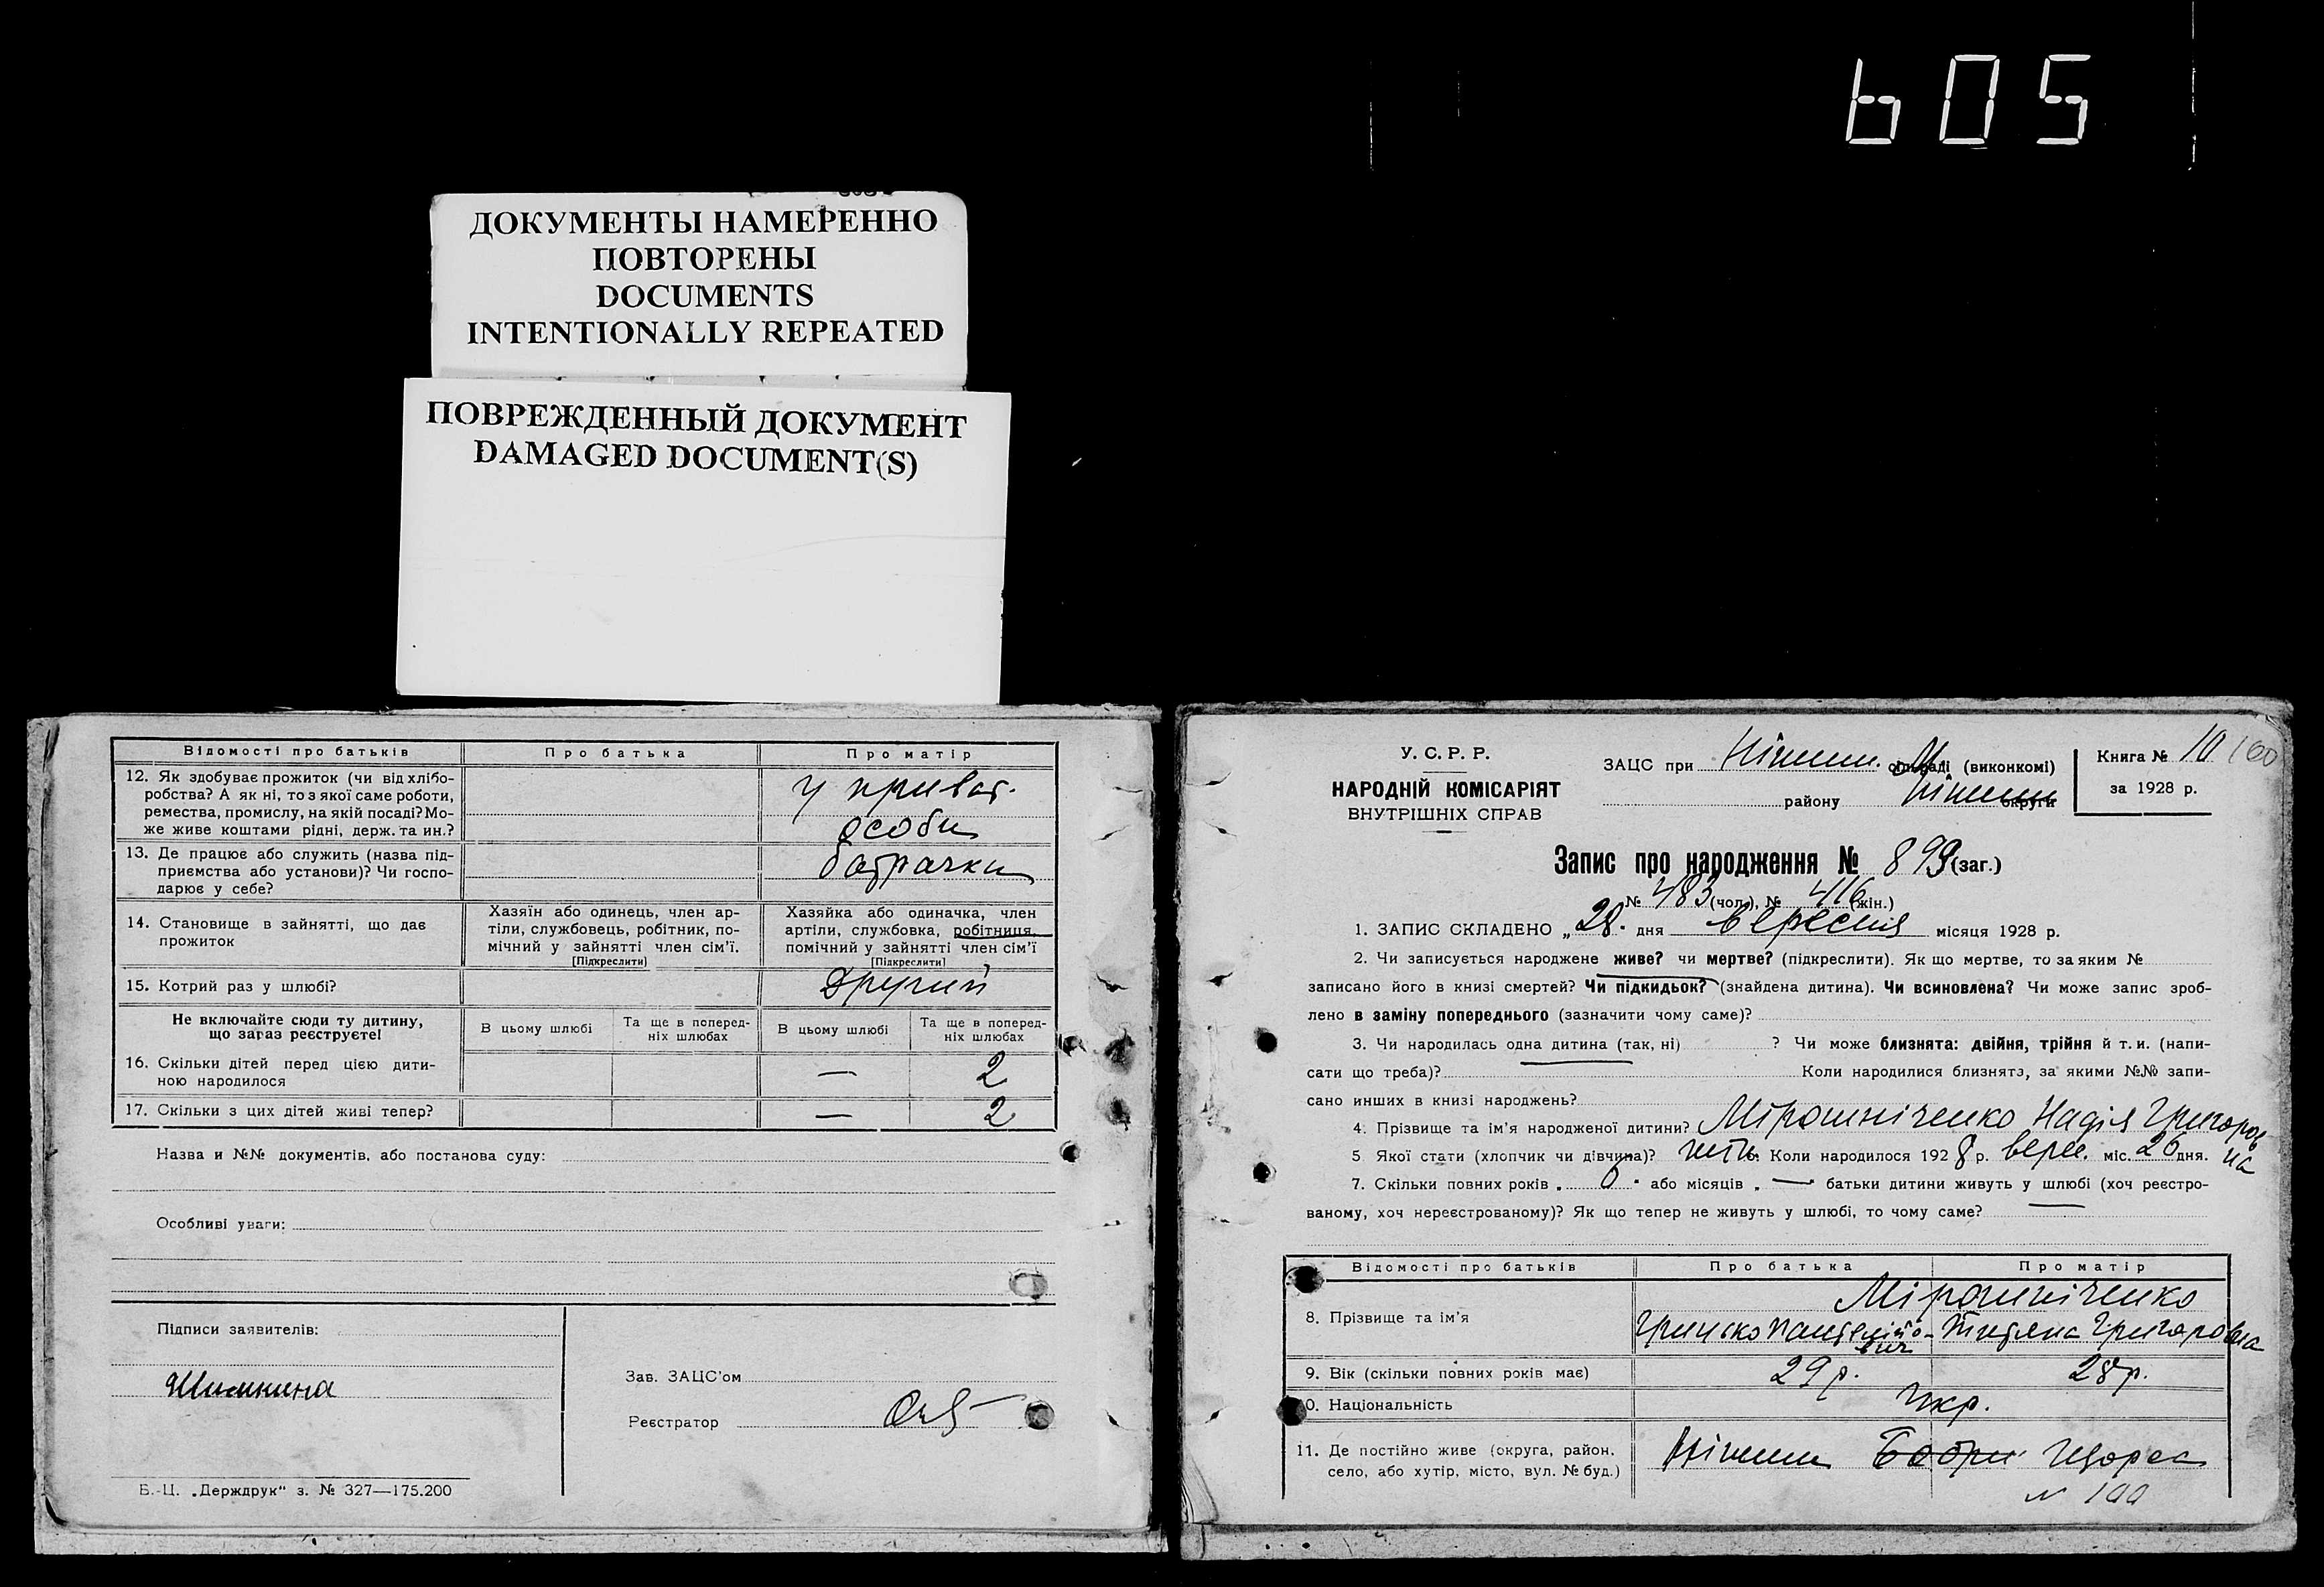 605
ДОКУМЕНТЫ НАМЕРЕННО
ПОВТОРЕНЫ
DOCUMENTS
INTENTIONALLY REPEATED
ПОВРЕЖДЕННЫЙ ДОКУМЕНТ
DAMAGED DOCUMENT(S)
Відомості про батьків Про батька Про матір
12. Як здобуває прожиток (чи від хлібо-
робства? А як ні, то з якої саме роботи,
ремества, промислу, на якій посаді? Мо-
же живе коштами рідні, держ. та ин.?
у приват.
особи
13. Де працює або служить (назва під-
приємства або установи)? Чи госпо-
дарює у себе?
батрачки
14. Становище в зайнятті, що дає
прожиток
Хазяїн або одинець, член ар-
тіли, службовець, робітник, по-
мічний у зайнятті член сім'ї.
[Підкреслити]
Хазяйка або одиначка, член
артіли, службовка, робітниця,
помічний у зайнятті член сім'ї
[Підкреслити]
15. Котрий раз у шлюбі? другий
Не включайте сюди ту дитину,
що зараз реєструєте!
В цьому шлюбі
Та ще в поперед-
ніх шлюбах
В цьому шлюбі
Та ще в поперед-
ніх шлюбах
16. Скільки дітей перед цією дити-
ною народилося
— 2
17. Скільки з цих дітей живі тепер? — 2
Назва и №№ документів, або постанова суду:
Особливі уваги:
Підписи заявителів:
Зав. ЗАЦС'ом
Реєстратор
Б.-Ц. „Держдрук" з. № 327—175.200
У. С. Р. Р.
НАРОДНІЙ КОМІСАРІЯТ
ВНУТРІШНІХ СПРАВ
ЗАЦС при Ніжин. сільраді (виконкомі)
району Ніжин округи
Книга № 10 160
за 1928 р.
Запис про народження № 899 (заг.)
№ 483 (чол.), № 416 (жін.)
1. ЗАПИС СКЛАДЕНО „28. дня вересня місяця 1928 р.
2. Чи записується народжене живе? чи мертве? (підкреслити). Як що мертве, то за яким №
записано його в книзі смертей? Чи підкидьок? (знайдена дитина). Чи всиновлена? Чи може запис зроб-
лено в заміну попереднього (зазначити чому саме)?
3. Чи народилась одна дитина (так, ні) ? Чи може близнята: двійня, трійня й т. и. (напи-
сати що треба)? Коли народилися близнята, за якими №№ запи-
сано инших в книзі народжень?
4. Прізвище та ім'я народженої дитини? Мірошніченко Надія Григоров
на
5 Якої стати (хлопчик чи дівчина)? Коли народилося 1928 р. верес. міс. 26 дня.
7. Скільки повних років „ 6 " або місяців „ — " батьки дитини живуть у шлюбі (хоч реєстро-
ваному, хоч нереєстрованому)? Як що тепер не живуть у шлюбі, то чому саме?
Відомості про батьків Про батька Про матір
8. Прізвище та ім'я
Мірошніченко
Грицько Пантелійо-
вич
Тетяна Григоровна
9. Вік (скільки повних років має) 29 р. 28 р.
10. Національність Укр.
11. Де постійно живе (округа, район,
село, або хутір, місто, вул. № буд.)
Ніжин Щорса
№ 100